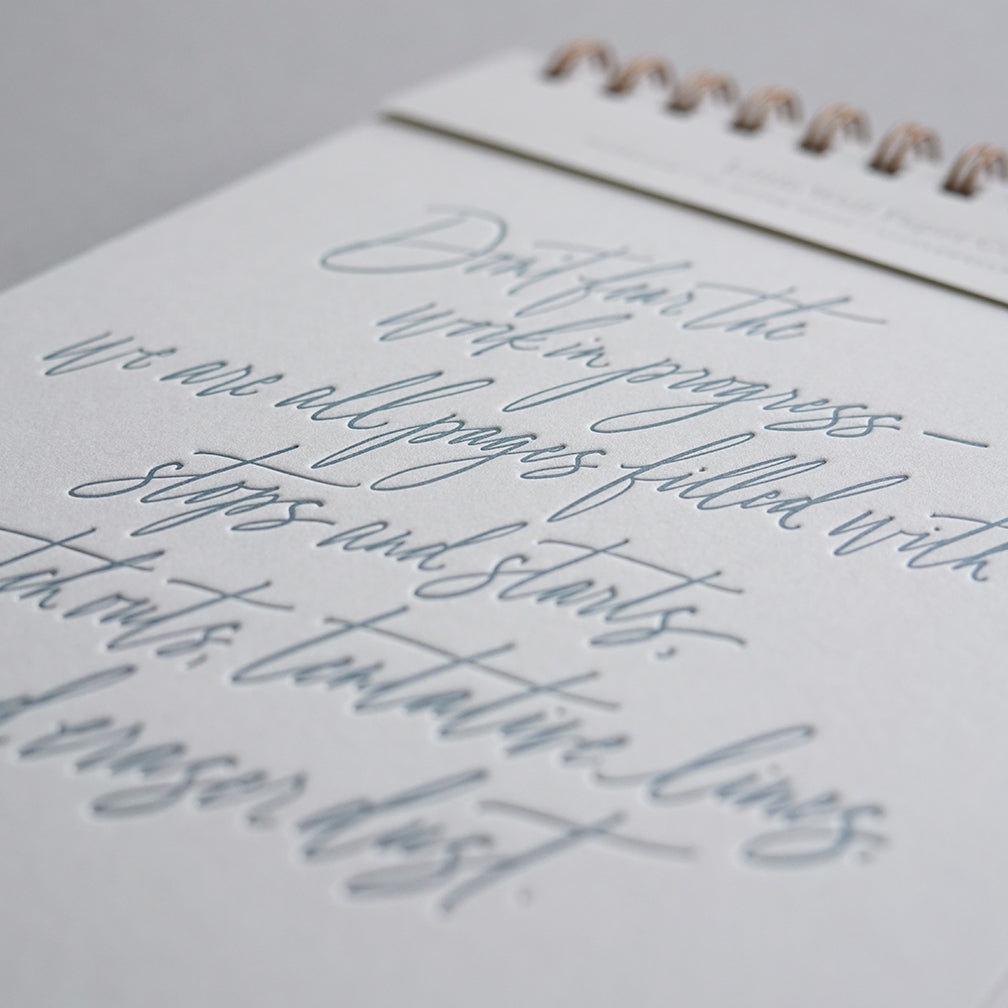 Don't fear the
work in progress —
we are all pages filled with
stops and starts,
tch outs, tentative lines,
d eraser dust.